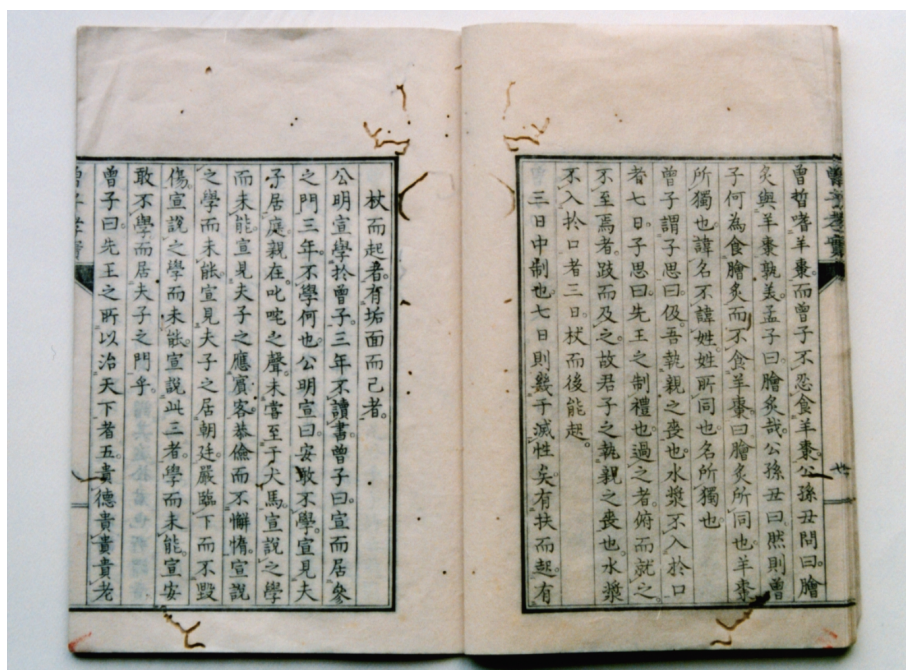 曾晳嗜羊棗。而曾子不忍食羊棗。公孫丑問曰。膾
炙與羊棗孰羙。孟子曰。膾炙哉。公孫丑曰。然則曾
子何為食膾炙而不食羊棗。曰膾炙所同也。羊棗
所獨也。諱名不諱姓。姓所同也。名所獨也。
曾子謂子思曰。伋。吾執親之喪也。水漿不入於口
者七日。子思曰。先王之制禮也。過之者俯而就之
不至焉者。跂而及之。故君子之執親之喪也。水漿
不入於口者三日。杖而後能起。
三日中制也。七日則幾于滅性矣。有扶而起。有
杖而起者。有垢面而已者。
公明宣學於曾子。三年不讀書。曾子曰。宣而居參
之門三年。不學何也。公明宣曰。安敢不學。宣見夫
子居庭。親在叱咤之聲。未嘗至于犬馬。宣說之。學
而未能。宣見夫子之應賓客。恭儉而不懈惰。宣說
之。學而未能。宣見夫子之居朝廷。嚴臨下而不毀
傷。宣說之。學而未能。宣說此三者。學而未能。宣安
敢不學。而居夫子之門乎。
曾子曰。先王之所以治天下者五。貴德貴貴貴老